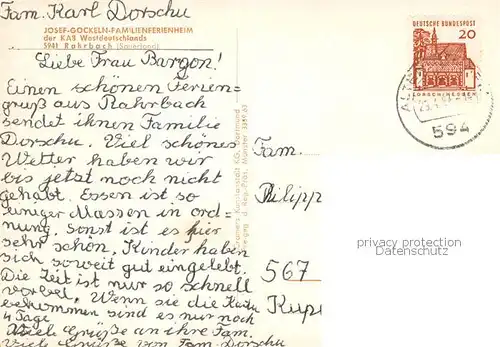 Fam. Karl Dorschu
JOSEF-GOCKELN-FAMILIENFERIENHEIM
der KAB Westdeutschlands
5941 Rahrbach (Sauerland)
Liebe Frau Bargon!
Einen schönen Ferien-
gruß aus Rahrbach
sendet ihnen Familie
Dorschu. Viel schönes
Wetter haben wir
bis jetzt noch nicht
gehabt. Essen ist so
einiger Massen in ord
nung. Sonst ist es hier
sehr schön, Kinder haben
sich soweit gut eingelebt.
Die Zeit ist nur so schnell
vorbei. Wenn sie die Karte
bekommen sind es nur noch
4 Tage
Viele Grüße an ihre Fam.
Viele Grüße von Fam. Dorschu
Fam.
Philipp
567
Kup
DEUTSCHE BUNDESPOST
20
LORSCH/HESSEN
594
privacy protection
Datenschutz